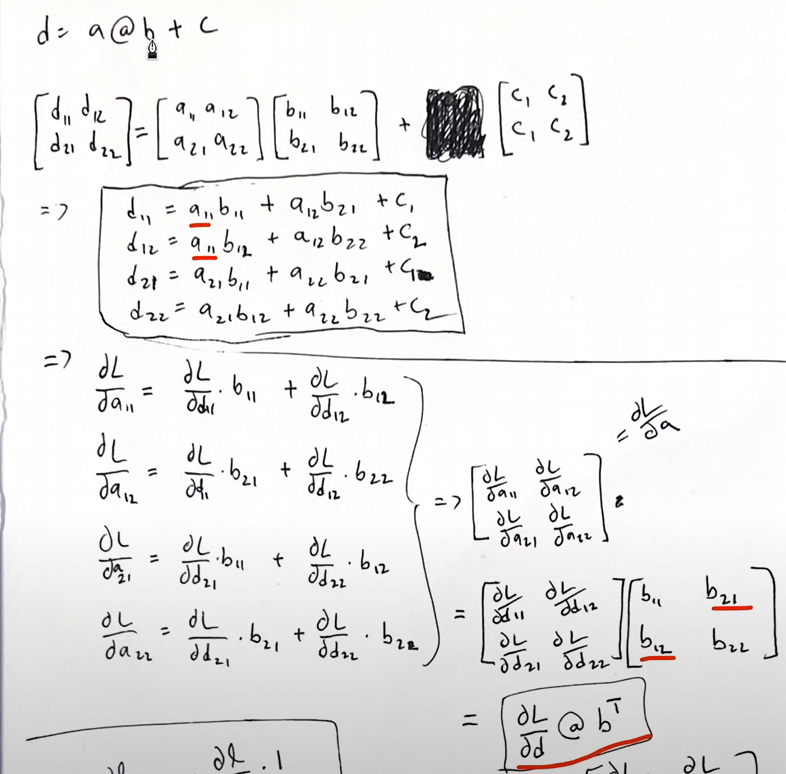 d = a @ b + c
[d₁₁ d₁₂; d₂₁ d₂₂] = [a₁₁ a₁₂; a₂₁ a₂₂] [b₁₁ b₁₂; b₂₁ b₂₂] + [c₁ c₂; c₁ c₂]
=> d₁₁ = a₁₁b₁₁ + a₁₂b₂₁ + c₁
d₁₂ = a₁₁b₁₂ + a₁₂b₂₂ + c₂
d₂₁ = a₂₁b₁₁ + a₂₂b₂₁ + c₁
d₂₂ = a₂₁b₁₂ + a₂₂b₂₂ + c₂
=> ∂L/∂a₁₁ = ∂L/∂d₁₁ · b₁₁ + ∂L/∂d₁₂ · b₁₂
∂L/∂a₁₂ = ∂L/∂d₁ · b₂₁ + ∂L/∂d₁₂ · b₂₂
∂L/∂a₂₁ = ∂L/∂d₂₁ · b₁₁ + ∂L/∂d₂₂ · b₁₂
∂L/∂a₂₂ = ∂L/∂d₂₁ · b₂₁ + ∂L/∂d₂₂ · b₂₂
= ∂L/∂a
=> [∂L/∂a₁₁ ∂L/∂a₁₂; ∂L/∂a₂₁ ∂L/∂a₂₂]
= [∂L/∂d₁₁ ∂L/∂d₁₂; ∂L/∂d₂₁ ∂L/∂d₂₂] [b₁₁ b₂₁; b₁₂ b₂₂]
= ∂L/∂d @ bᵀ
· 1